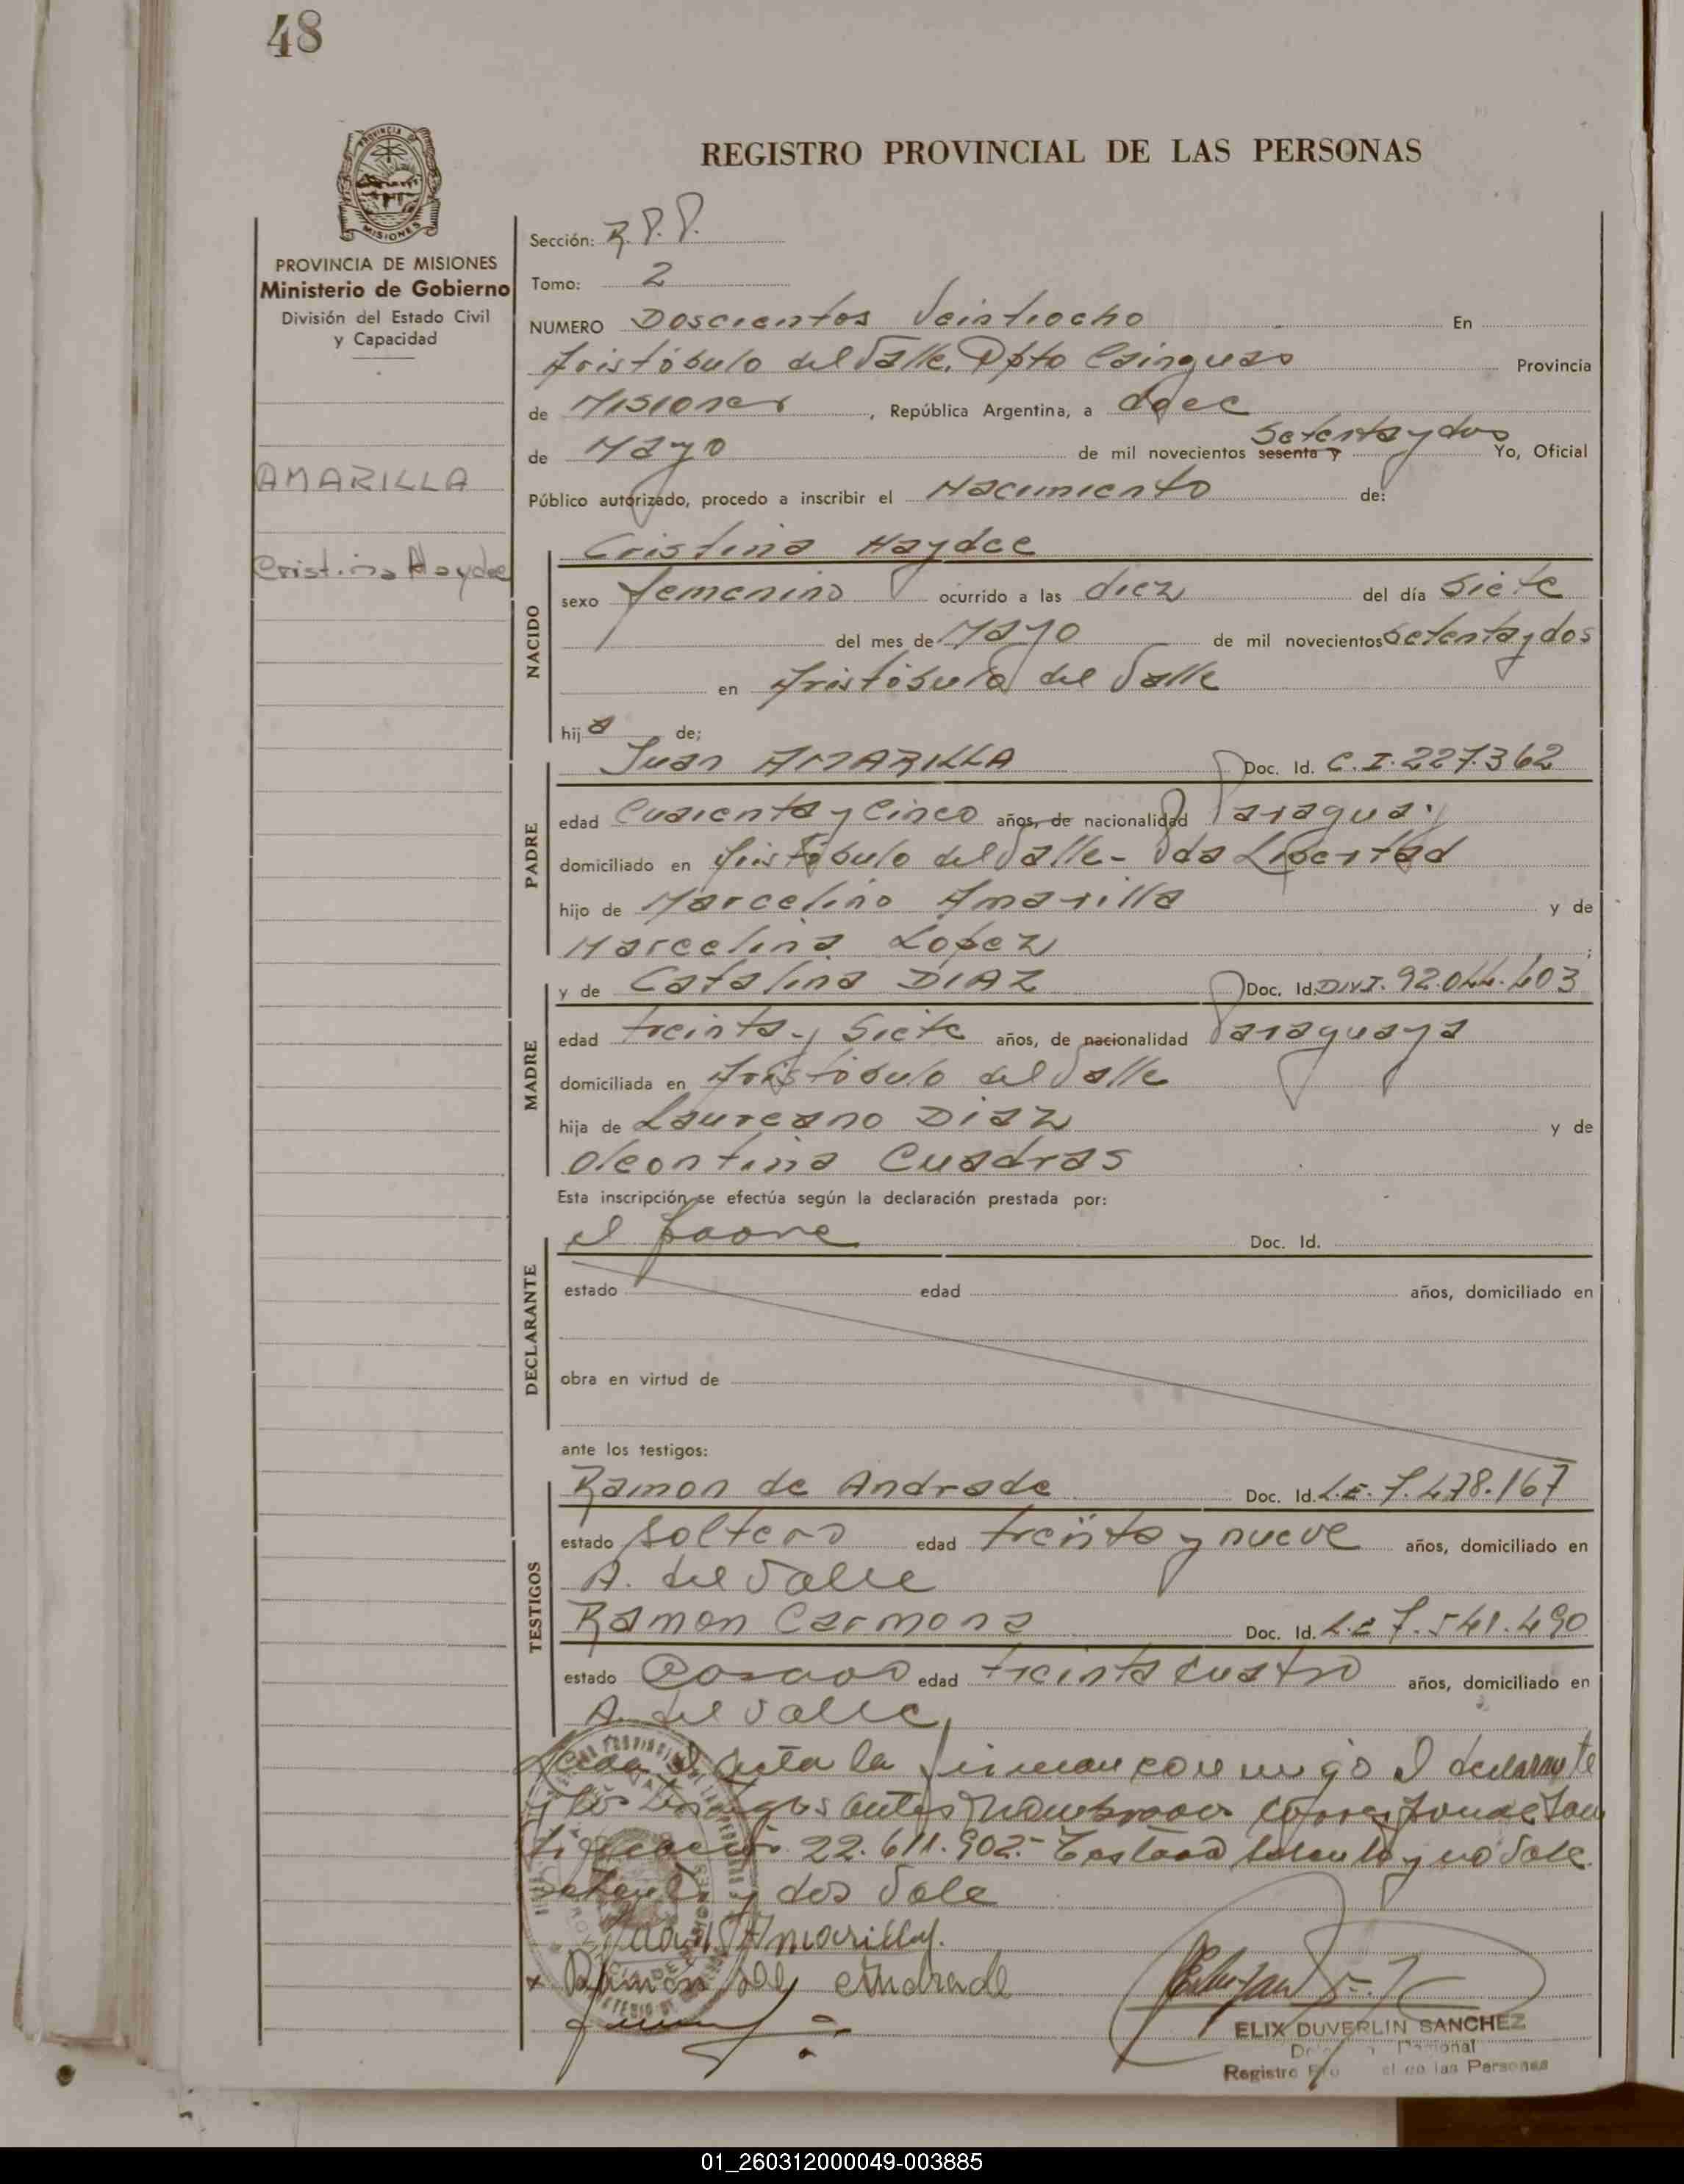 48
REGISTRO PROVINCIAL DE LAS PERSONAS
PROVINCIA DE MISIONES
Ministerio de Gobierno
División del Estado Civil
y Capacidad
AMARILLA
Cristina Haydee
Sección: R.P.P.
Tomo: 2
NUMERO Doscientos Veintiocho En
Aristóbulo del Valle, Dpto Cainguas Provincia
de Misiones, República Argentina, a doce
de Mayo de mil novecientos sesenta y Setenta y dos Yo, Oficial
Público autorizado, procedo a inscribir el Nacimiento de:
NACIDO
Cristina Haydee
sexo femenino ocurrido a las diez del día Siete
del mes de Mayo de mil novecientos Setenta y dos
en Aristóbulo del Valle
hija de;
PADRE
Juan AMARILLA Doc. Id. C.I. 227.362
edad Cuarenta y Cinco años, de nacionalidad Paragua.
domiciliado en Aristóbulo del Valle - Libertad
hijo de Marcelino Amarilla y de
Marcelina Lopez ;
MADRE
y de Catalina DIAZ Doc. Id. D.N.I. 92.044.403
edad treinta y Siete años, de nacionalidad Paraguaya
domiciliada en Aristóbulo del Valle
hija de Laureano Diaz y de
Oleontina Cuadras
Esta inscripción se efectúa según la declaración prestada por:
DECLARANTE
el padre Doc. Id.
estado edad años, domiciliado en
obra en virtud de
ante los testigos:
TESTIGOS
Ramon de Andrade Doc. Id. L.E. 7.478.167
estado Soltero edad treinta y nueve años, domiciliado en
A. del Valle
Ramon Carmona Doc. Id. L.E 7.541.490
estado Casado edad treinta cuatro años, domiciliado en
A. del Valle,
Leida el acta la firman conmigo el declarante
y los testigos antes nombrados
22.611.902.- Testado sesenta y no Vale
setenta y dos Vale
Juan Amarilla.
x Ramón de Andrade
ELIX DUVERLIN SANCHEZ
Registro las Personas
01_260312000049-003885